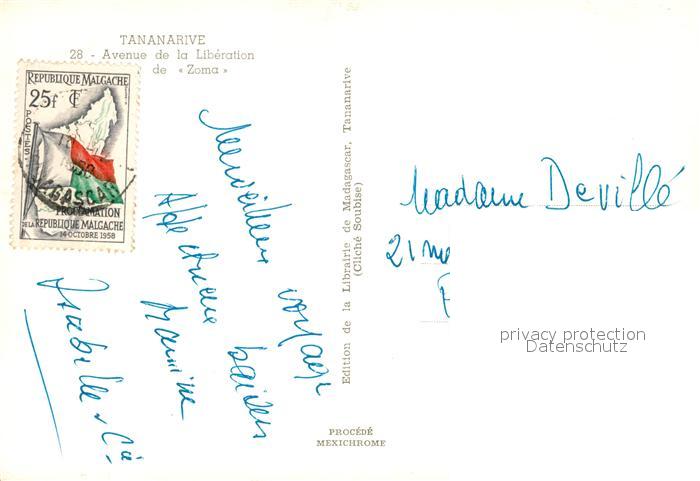 TANANARIVE
28 - Avenue de la Libération
de « Zoma »
REPUBLIQUE MALGACHE
25f
POSTES
PROCLAMATION
DE LA RÉPUBLIQUE MALGACHE
14 OCTOBRE 1958
Merveilleux voyage
Affectueux baisers
Isabelle & Cie
Edition de la Librairie de Madagascar, Tananarive
(Cliché Soubise)
Madame Devillé
21
privacy protection
Datenschutz
PROCÉDÉ
MEXICHROME